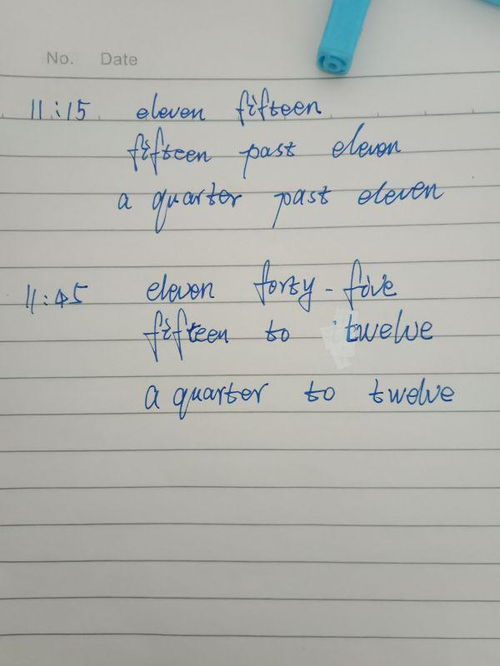 No. Date
11:15 eleven fifteen
fifteen past eleven
a quarter past eleven
11:45 eleven forty-five
fifteen to twelve
a quarter to twelve